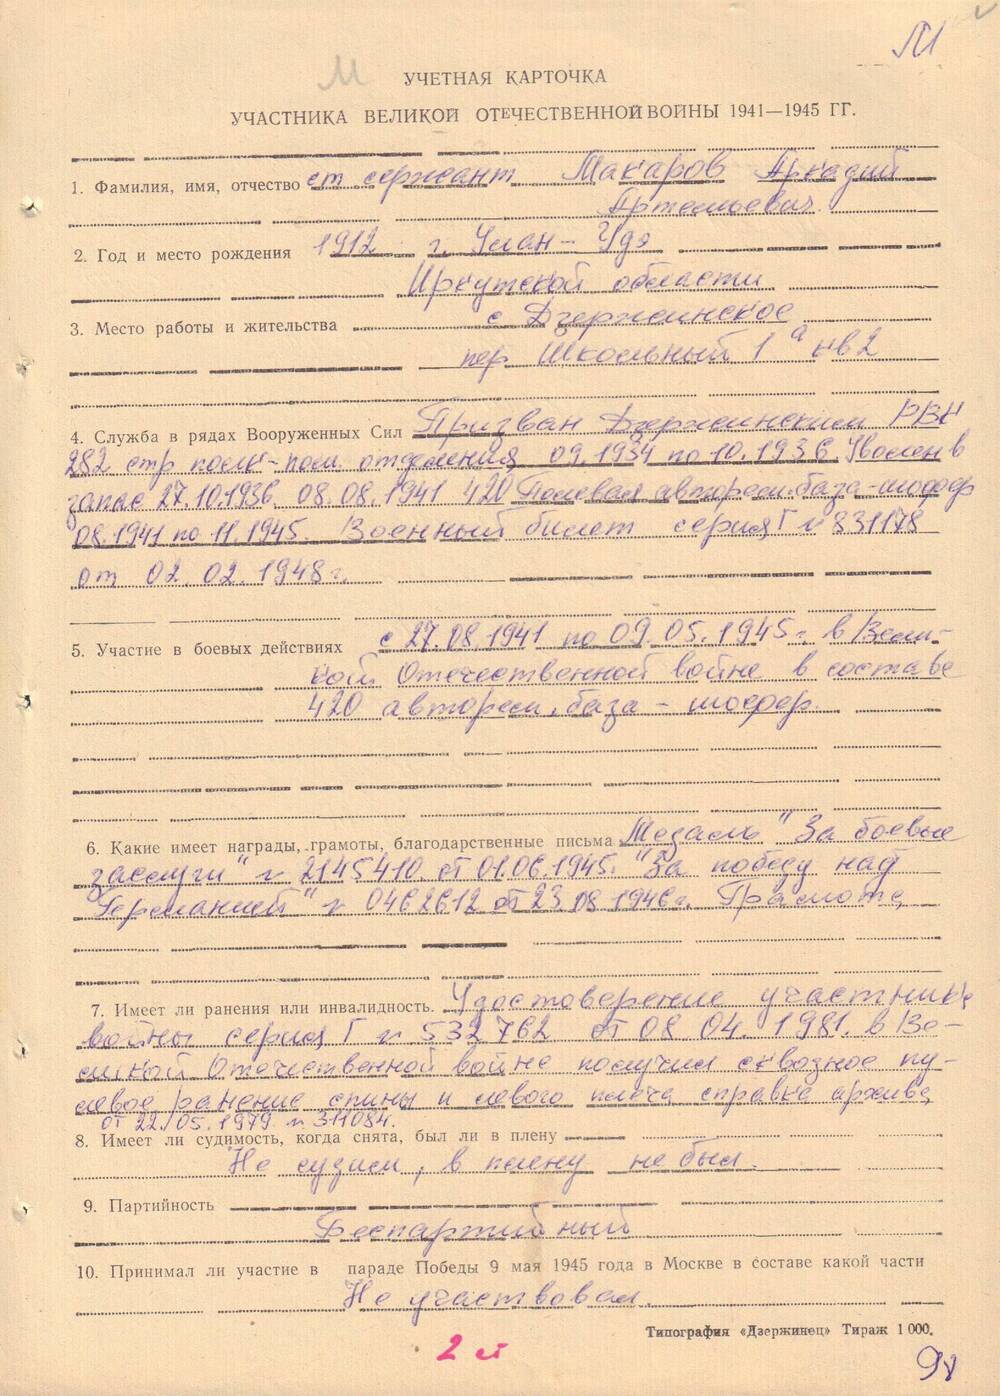 М
М
УЧЕТНАЯ КАРТОЧКА
УЧАСТНИКА ВЕЛИКОЙ ОТЕЧЕСТВЕННОЙ ВОЙНЫ 1941—1945 ГГ.
1. Фамилия, имя, отчество ст сержант Макаров Аркадий
Артемьевич.
2. Год и место рождения 1912 г. Улан-Удэ
Иркутской области
3. Место работы и жительства с Дзержинское
пер Школьный 1 а кв 2
4. Служба в рядах Вооруженных Сил Призван Дзержинским РВК
282 стр полк-пом. отделения 09.1934 по 10.1936. Уволен в
запас 27.10.1936. 08.08.1941 420 Полевая авторем. база-шофер
08.1941 по 11.1945. Военный билет серия Г № 831178
от 02.02.1948г.
5. Участие в боевых действиях с 27.08.1941 по 09.05.1945г. в Вели-
кой Отечественной войне в составе
420 авторем. база - шофер.
6. Какие имеет награды, грамоты, благодарственные письма Медаль "За боевые
заслуги" № 2145410. от 01.06.1945. "За победу над
Германией" № 0462612 от 23.08.1946г. Грамота
7. Имеет ли ранения или инвалидность. Удостоверение участника
войны серия Г № 532762 от 08.04.1981. в Ве-
ликой Отечественной войне получил сквозное пу-
левое ранение спины и левого плеча справка архива
от 22.05.1979. № 311084.
8. Имеет ли судимость, когда снята, был ли в плену
Не судим, в плену не был.
9. Партийность
Беспартийный
10. Принимал ли участие в параде Победы 9 мая 1945 года в Москве в составе какой части
Не участвовал.
Типография «Дзержинец» Тираж 1 000.
2